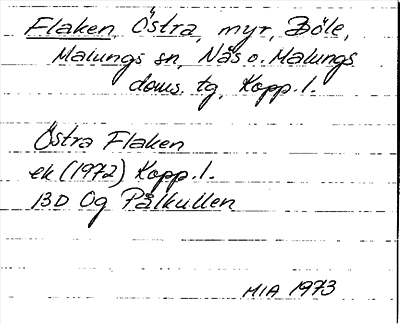 Flaken, Östra, myr, Böle,
Malungs sn, Nås o. Malungs
doms. tg, Kopp. l.
Östra Flaken
ek (1972) Kopp. l.
13D 0g Pålkullen
MIA 1973